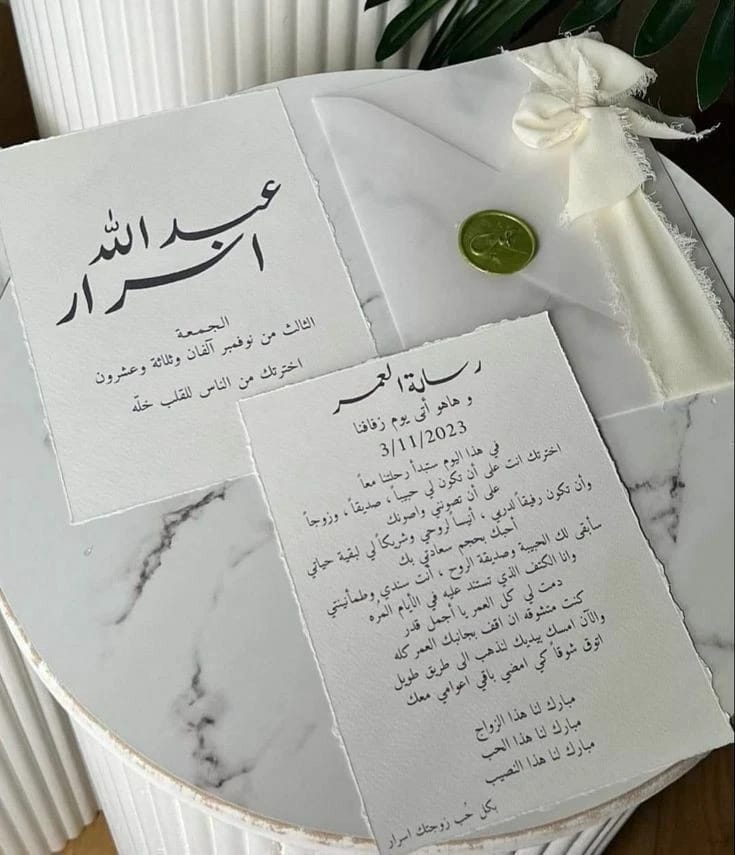 عبدالله
اسرار
الجمعة
الثالث من نوفمبر آلفان وثلاثة وعشرون
اخترتك من الناس للقلب خلّه
رسالة العمر
و هاهو أتى يوم زفافنا
3/11/2023
في هذا اليوم ستبدأ رحلتنا معاً
اخترتك انت على أن تكون لي حبيباً ، صديقاً ، وزوجاً
على أن تصونني واصونك
وأن تكون رفيقاً لدربي ، أنيساً لروحي وشريكاً لي لبقية حياتي
أحبك بحجم سعادتي بك
سأبقى لك الحبيبة وصديقة الروح ، أنت سندي وطمأنينتي
وانا الكتف الذي تستند عليه في الأيام المُره
دمت لي كل العمر يا أجمل قدر
كنت متشوقه ان اقف بجانبك العمر كله
والآن امسك بيديك لنذهب الى طريق طويل
اتوق شوقاً كي امضي باقي اعوامي معك
مبارك لنا هذا الزواج
مبارك لنا هذا الحب
مبارك لنا هذا النصيب
بكل حُب زوجتك اسرار